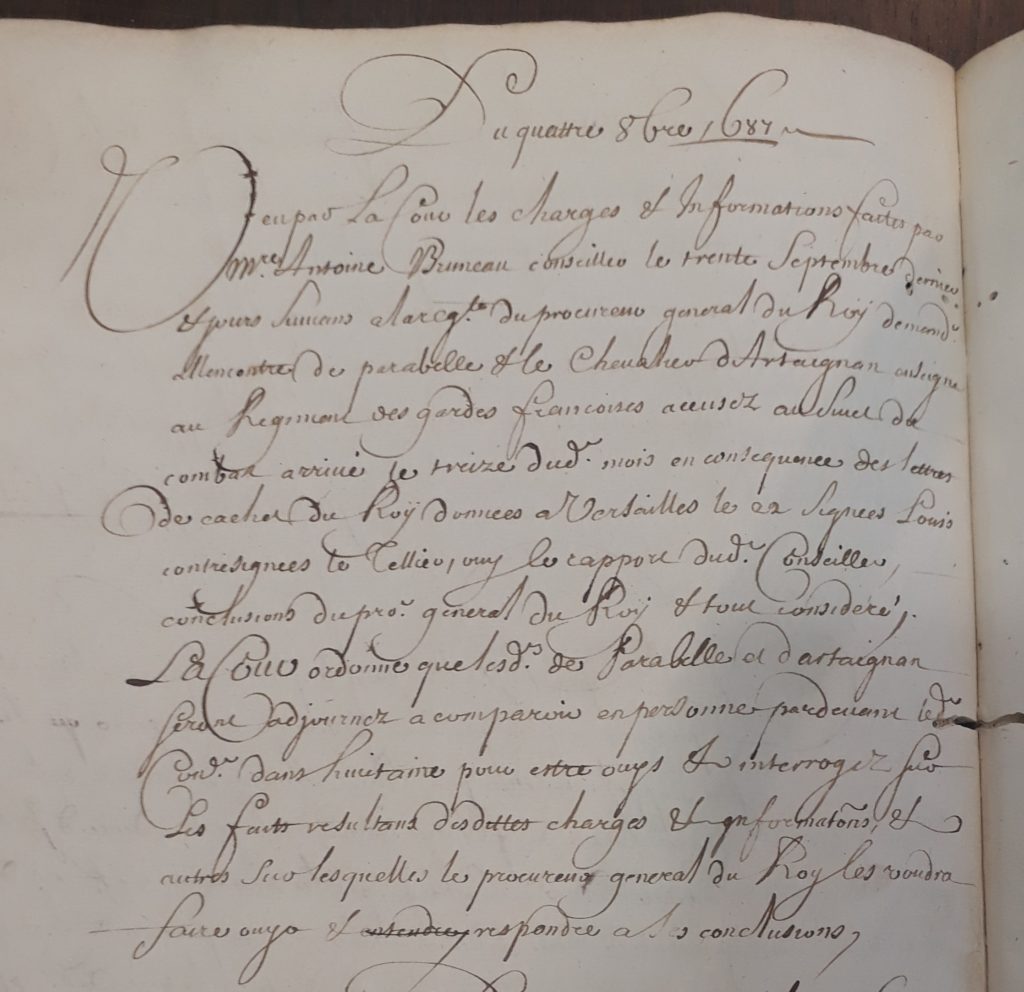 Du quattre 8bre 1687
Veu par La Cour les charges et Informations faites par
Mre. Antoine Bruneau conseiller le trente Septembre dernier
et jours suivans a la reqte. du procureur general du Roÿ demandr.
allencontre de parabelle et le Chevalier d'Artaignan enseigne
au Regiment des gardes francoises accusez au sujet du
combat arrivé le treize dud. mois en consequence des lettres
de cachet du Roÿ données a Versailles le 22 signées Louis
contresignées le Tellier, ouy le rapport dud. Conseiller,
conclusions du pror. general du Roÿ et tout consideré,
La Cour ordonne que lesds. de Parabelle et dartaignan
seront adjournez a comparoir en personne pardevant led.
Conr. dans huictaine pour estre ouys et interrogez sur
Les faits resultans desdittes charges et Informatons, et
autres sur lesquelles le procureur general du Roy les voudra
faire ouyr et entendre, respondre a ses conclusions,